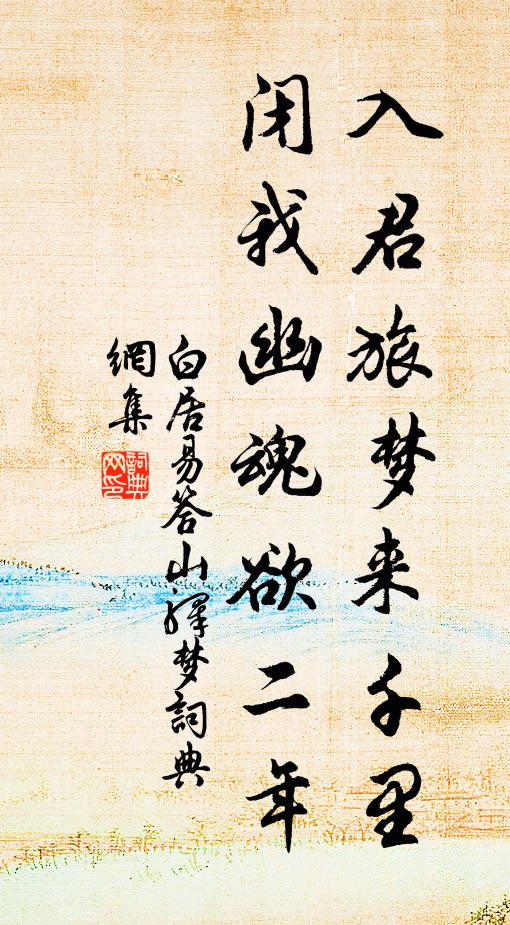 入君旅梦来千里
闭我幽魂欲二年
白居易答山驛梦詞典
網集
詞典网印